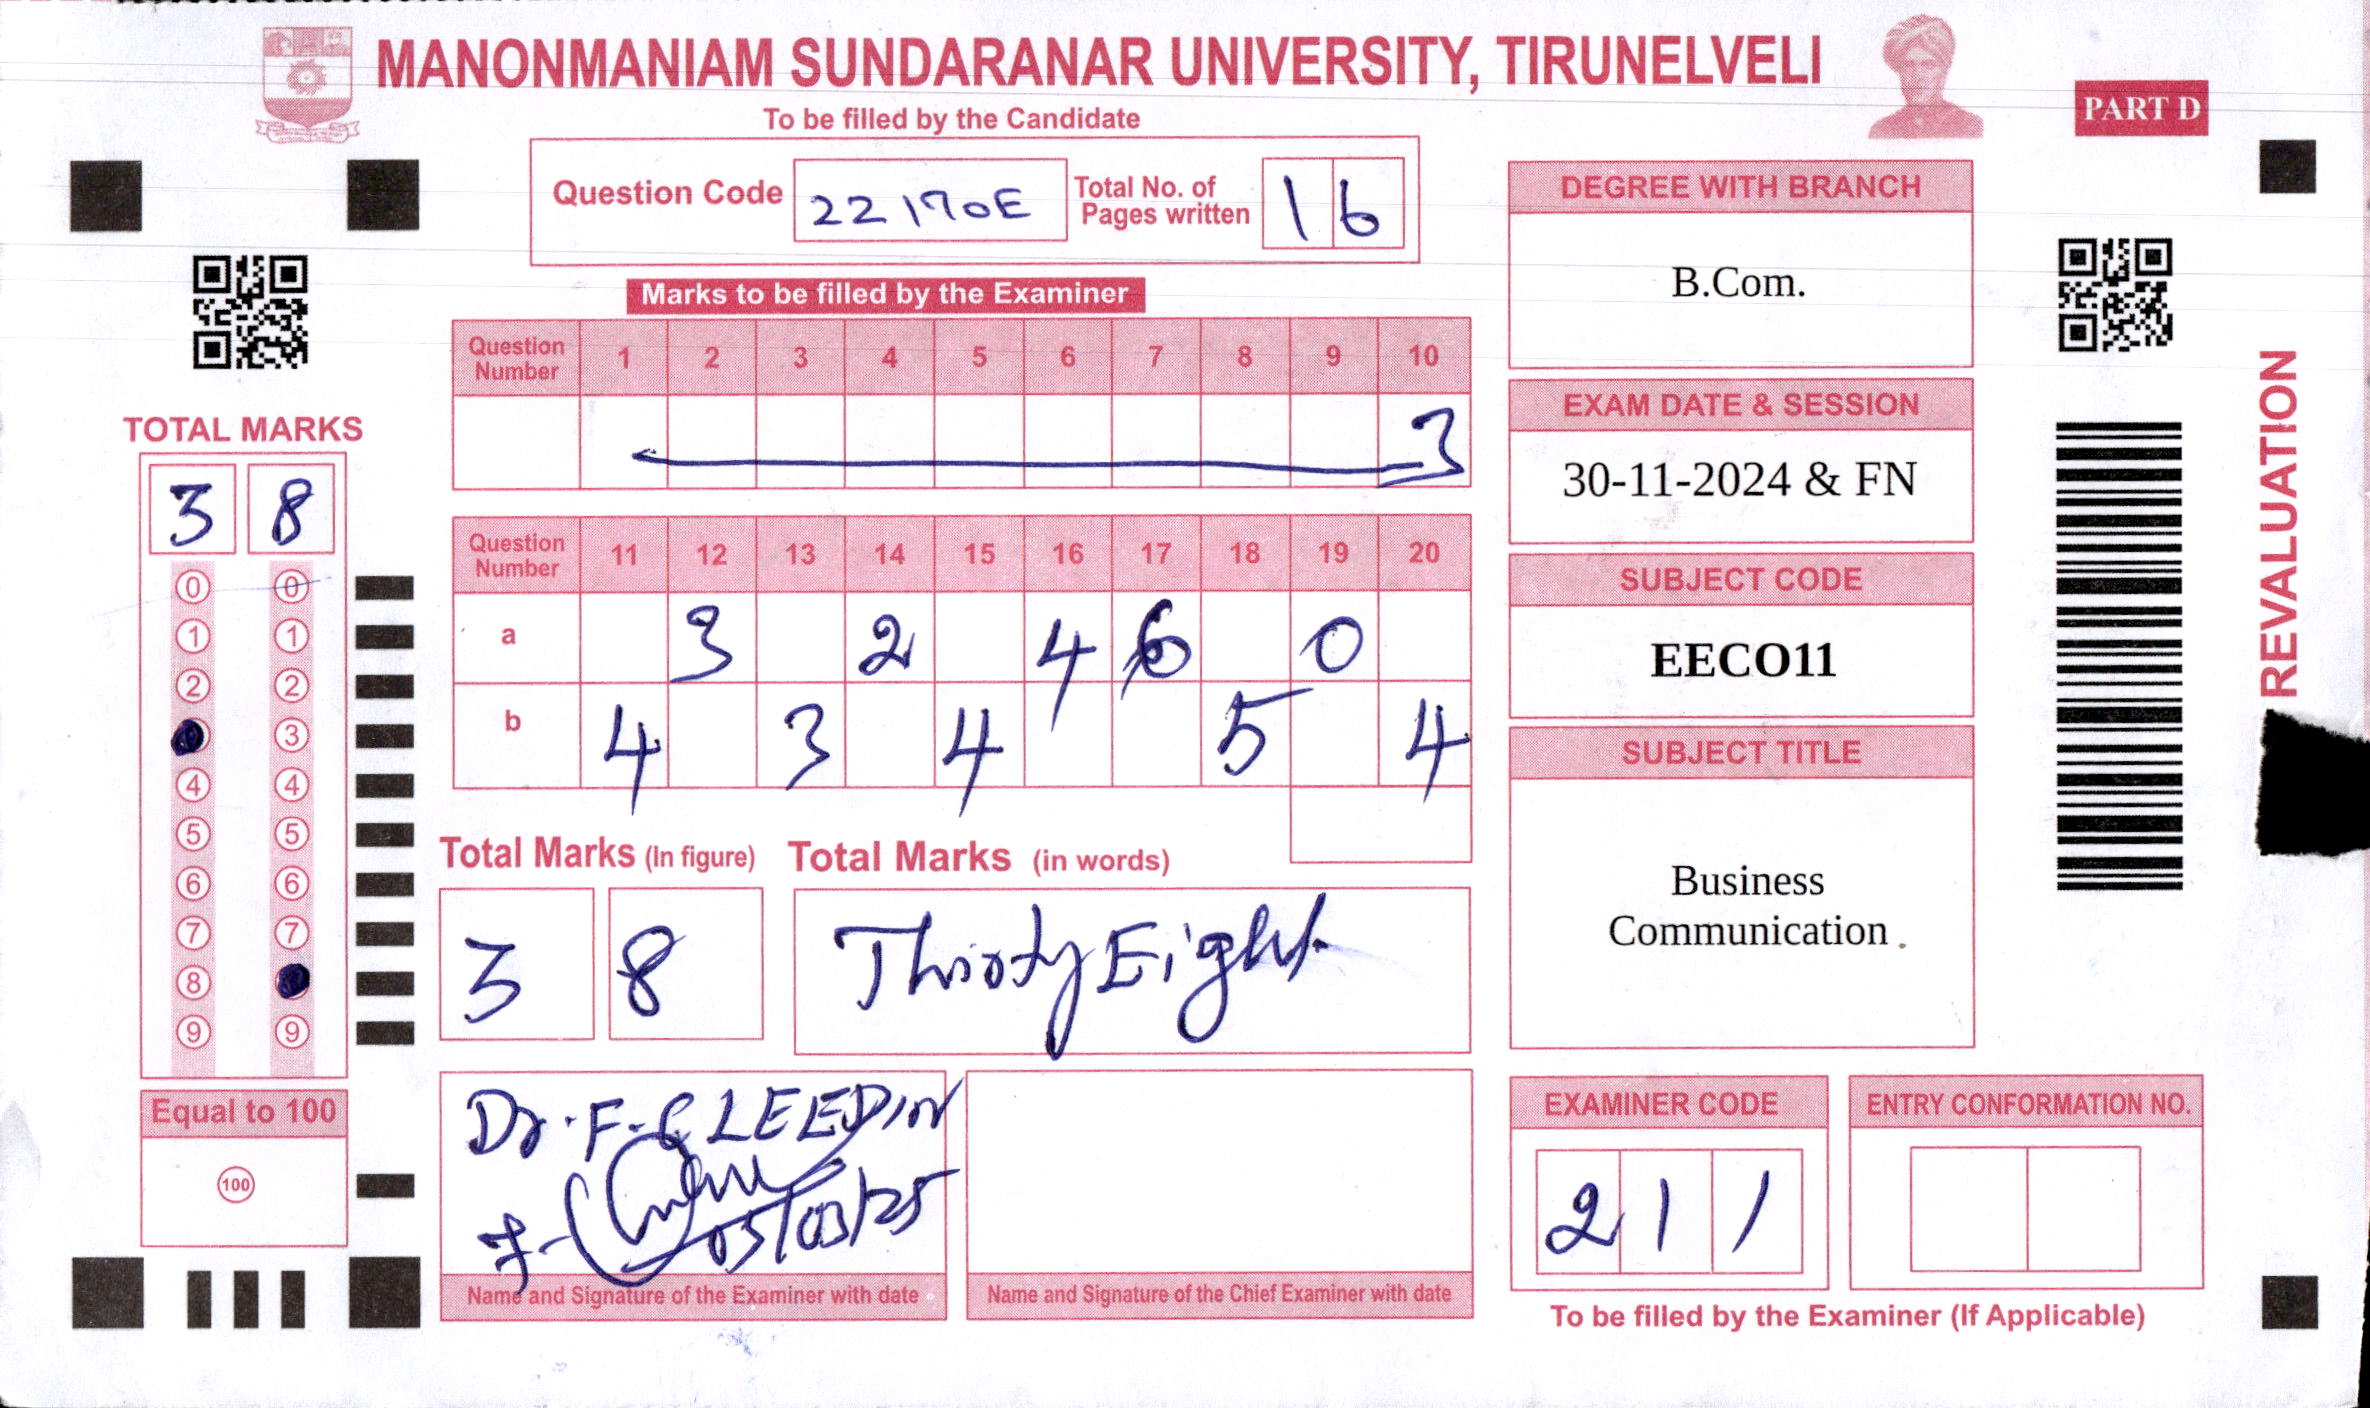 MANONMANIAM SUNDARANAR UNIVERSITY, TIRUNELVELI
PART D
To be filled by the Candidate
Question Code 22170E Total No. of Pages written 16
Marks to be filled by the Examiner
Question Number 1 2 3 4 5 6 7 8 9 10
3
Question Number 11 12 13 14 15 16 17 18 19 20
a 3 2 4 6 0
b 4 3 4 5 4
Total Marks (In figure) Total Marks (in words)
3 8 Thirty Eight
TOTAL MARKS
3 8
0 0
1 1
2 2
3
4 4
5 5
6 6
7 7
8
9 9
Equal to 100
100
Dr. F. CLEEDIN
05/03/25
Name and Signature of the Examiner with date
Name and Signature of the Chief Examiner with date
DEGREE WITH BRANCH
B.Com.
EXAM DATE & SESSION
30-11-2024 & FN
SUBJECT CODE
EECO11
SUBJECT TITLE
Business
Communication
EXAMINER CODE
2 1 1
ENTRY CONFORMATION NO.
To be filled by the Examiner (If Applicable)
REVALUATION